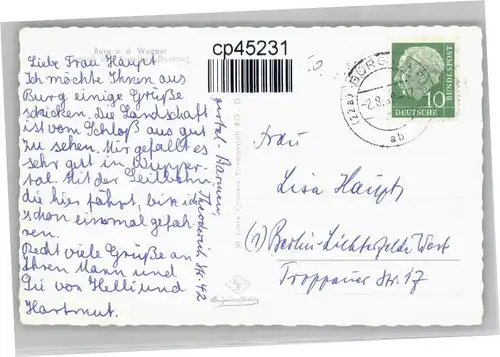 Burg a. d. Wupper
cp45231
Liebe Frau Haupt
Ich möchte Ihnen aus
Burg einige Grüße
schicken. Die Landschaft
ist vom Schloß aus gut
zu sehen. Mir gefällt es
sehr gut in Wupper-
tal. Mit der Seilbahn
die hier fährt, bin ich
schon einmal gefah-
ren.
Recht viele Grüße an
Ihren Mann und
Sie von Helli und
Hartmut.
Theoderich Str. 42
(22a) BURG
-2.8.
ab
10
DEUTSCHE
BUNDESPOST
Frau
Lisa Haupt
(1) Berlin-Lichterfelde West
Troppauer Str. 17